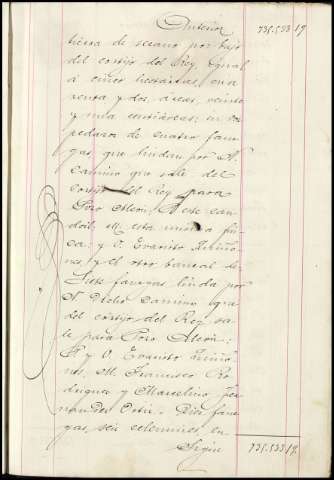 Anterior 735.533 19
tierra de secano por bajo
del cortijo del Rey, igual
á cinco hectáreas, cua
renta y dos, áreas, veinte
y una centiáreas; en dos
pedazos de cuatro fane
gas, que lindan por N.
Camino que sale del
Cortijo del Rey para
Pozo Alcón; E este can
M. esta misma fin
ca; y O. Evaristo Quiño
nes, y el otro bancal de
Siete fanegas linda por
N. Dicho camino que
del cortijo del Rey sa
le para Pozo Alcón;
y O. Evaristo Quiño
nes, M. Francisco Ro
driguez y Marcelino Fer
nandez Ortiz. Diez fane
gas, seis celemines en
Sigue 735.533 19.